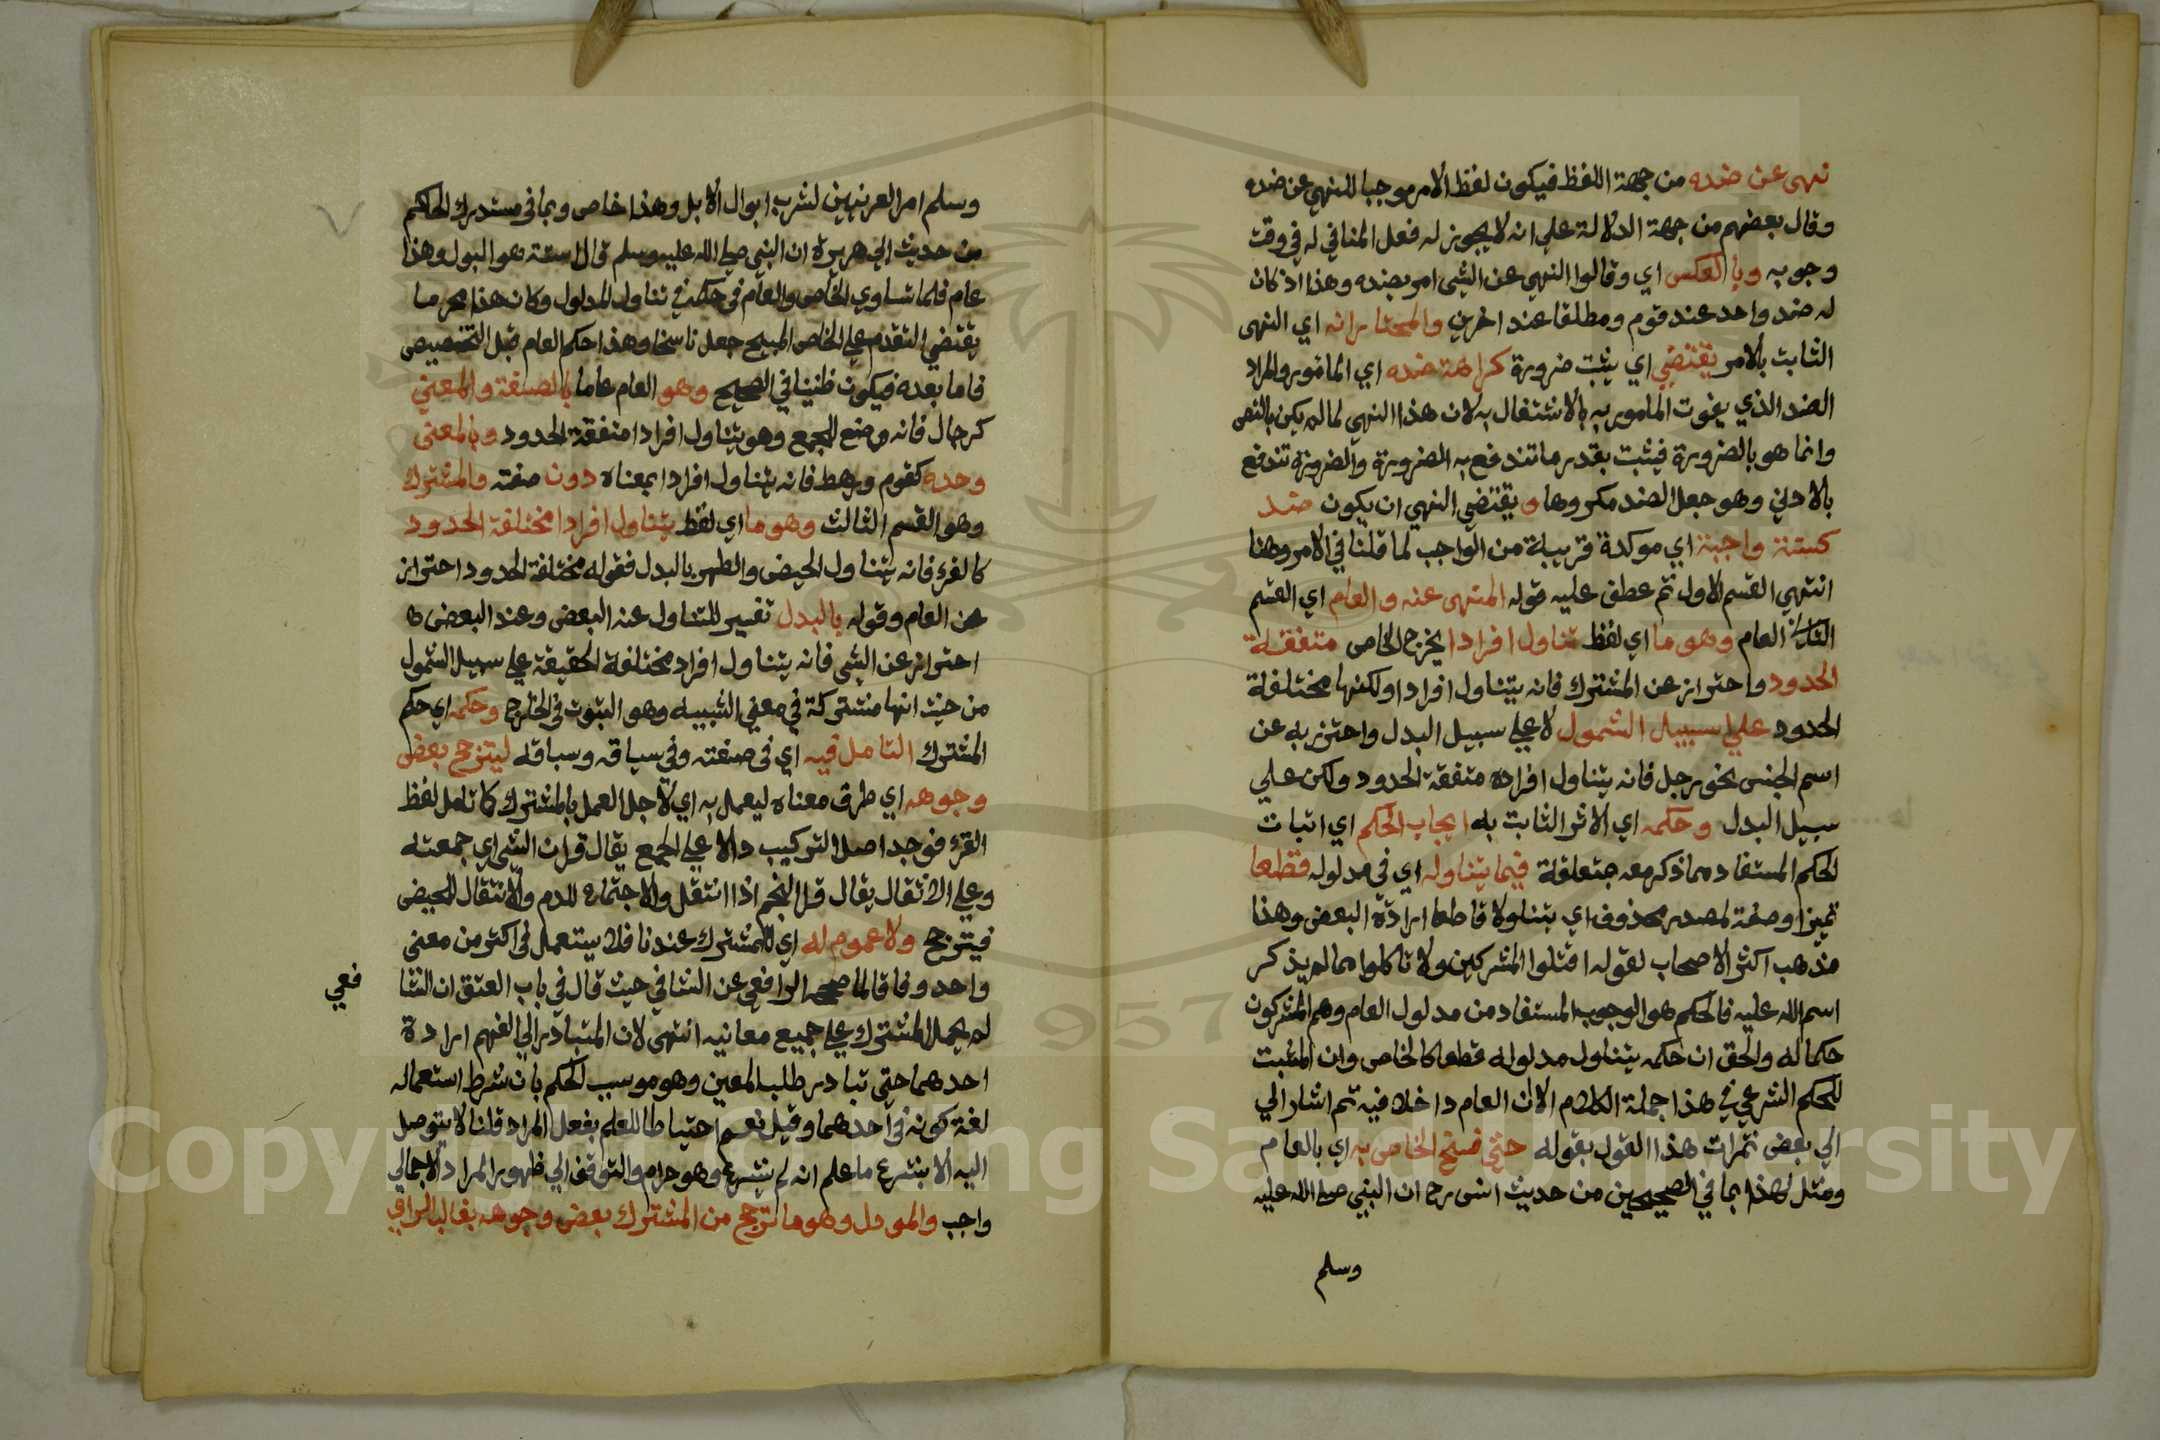 نهى عن ضده من جهة اللفظ فيكون لفظ الامر موجبا للنهي عن ضده
وقال بعضهم من جهة الدلالة علي انه لا يجوز له فعل المنافي له في وقت
وجوبه وبالعكس اي وقالوا النهي عن الشي امر بضده وهذا اذ كان
له ضد واحد عند قوم ومطلقا عند اخرين والمختار انه اي النهى
الثابت بالامر يقتضي اي يثبت ضرورة كراهة ضده اي المامور والمراد
الضد الذي يفوت المامور به بالاشتغال به لان هذا النهي لما لم يكن بالنص
وانما هو بالضرورة فيثبت بقدر ما تندفع به الضرورة والضرورة تندفع
بالادني وهو جعل الضد مكروها و يقتضي النهي ان يكون ضد
كسنة واجبة اي موكدة قريبة من الواجب لما قلنا في الامر وهنا
انتهي القسم الاول ثم عطف عليه قوله المنهى عنه والعام اي القسم
الثاني العام وهو ما اي لفظ تناول افرادا يخرج الخاص متفقة
الحدود واحترازعن المشترك فانه يتناول افرادا ولكنها مختلفة
الحدود علي سبيل الشمول لا علي سبيل البدل واحترز به عن
اسم الجنس نحو رجل فانه يتناول افراده متفقة الحدود ولكن علي
سبيل البدل وحكمه اي الاثر الثابت به ايجاب الحكم اي اثبات
الحكم المستفاد مما ذكر معه متعلقة فيما يتناوله اي في مدلوله قطعا
تميز او صفة لمصدر محذوف اي يتناولا قاطعا ارادة البعض وهذا
مذهب اكثر الاصحاب لقوله اقتلوا المشركين ولا تاكلوا مما لم يذكر
اسم الله عليه فالحكم هو الوجوب المستفاد من مدلول العام وهم المشركون
حكما له والحق ان حكمه يتناول مدلوله قطعا كالخاص وان المثبت
للحكم الشرعي في هذا جملة الكلام الا ان العام داخل فيه ثم اشار الي
الي بعض ثمرات هذا القول بقوله حتى نسخ الخاص به اي بالعام
ومثل لهذا بما في الصحيحين من حديث انس رح ان النبي صلى الله عليه
وسلم
وسلم امر العرنيين لشرب ابوال الابل وهذا خاص وبما في مستدرك الحاكم
من حديث ابي هريرة ان النبي صلى الله عليه وسلم قال هو البول وهذا
عام فلما تساوي الخاص والعام في حكمه في تناول المدلول وكان هذا محرما
يقتضي التقدم علي الخاص المبيح جعل ناسخا وهذا حكم العام قبل التخصيص
فاما بعده فيكون ظنيا في الصحيح وهو العام عاما بالصيغة والمعني
كرجال فانه وضع للجمع وهو يتناول افرادا متفقة الحدود وبالمعنى
وحده كقوم ورهط فانه يتناول افرادا بمعناه دون صفته والمشترك
وهو القسم الثالث وهو ما اي لفظ يتناول افرادا مختلفة الحدود
كالقرء فانه يتناول الحيض والطهر بالبدل فقوله مختلفة الحدود احتراز
عن العام وقوله بالبدل تفسير للتناول عند البعض وعند البعض
احتراز عن الشي فانه يتناول افراد مختلفة الحقيقة علي سهيل الشمول
من حيث انها مشتركة في معني الشيئيه وهو الثبوت في الخارج وحكمه اي حكم
المشترك التامل فيه اي في صيغته وفي سياقه وسباقه ليترجح بعض
وجوهه اي طرق معناه ليعمل به اي لاجل العمل بالمشترك كما تامل لفظ
القرء فوجد اصل التركيب دالا علي الجمع يقال قرات الشي اي جمعته
وعلي الانتقال يقال قرا النجم اذا انتقل والاجتماع للدم والانتقال للحيض
فيترجح ولا عموم له اي للمشترك عندنا فلا يستعمل في اكثر من معنى
واحد وفاقا لما صححه الرافعي عن الشافعي حيث قال في باب العتق ان الشا
فعي
لم يحمل المشترك علي جميع معانيه انتهى لان المتبادر الي الفهم ارادة
احدهما حتى تبادر طلب المعين وهو موسب الحكم بان شرط استعماله
لغة كونه في احدهما وقيل نعم احتياطا للعلم بفعل المراد قلنا لا يتوصل
اليه الا بشرع ما علم انه لم يشرع وهو حرام والتوقف الي ظهور المراد الاجمالي
واجب والموول وهو ما ترجح من المشترك بعض وجوهه بغالب الراي
Copyright © King Saud University
1957